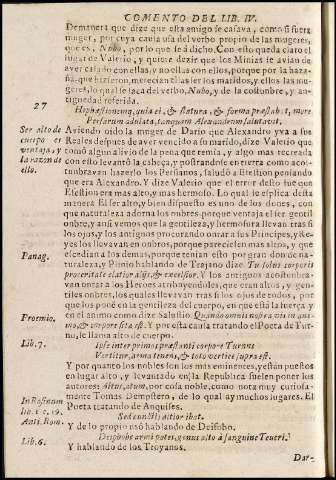 COMENTO DEL LIB. IV.
Demanera que dize que esta amigo se casava, como si fuera
muger, por cuya causa usa del verbo proprio de las mugeres,
que es, Nubo, por lo que se à dicho. Con esto queda claro el
lugar de Valerio, y quiere dezir que los Minias se avian de
aver casado con ellas, y no ellas con ellos, porque por la haza-
ña, que hizieron, merecian ellas ser los maridos, y ellos las mu-
geres, lo qual se saca del verbo, Nubo, y de la costumbre, y an-
tiguedad referida.
27
Hephæstionemq; quia ei, & statura, & forma præstabat, more
Persarum adulata, tamquam Alexandrum salutavit.
Ser alto de
cuerpo es
ventaja, y
la razon de
ello.
Aviendo oido la muger de Dario que Alexandro yva a sus
Reales después de aver vencido a su marido, dize Valerio que
como algun alivio de la pena que tenia, y algo mas recreada
con esto levantò la cabeça, y postrandose en tierra como acos-
tunbravan hazerlo los Persianos, saludò a Efestion pensando
que era Alexandro. Y dize Valerio que el error desto fue que
Efestion era mas alto, y mas hermoso. Lo qual se esplica desta
manera. El ser alto, y bien dispuesto es uno de los dones, con
que naturaleza adorna los onbres, porque ventaja el ser gentil
onbre, y ansi vemos que la gentileza, y hermosura llevan tras si
los ojos, y los antiguos procurando omar a sus Principes, y Re-
yes los llevavan en onbros, porque pareciesen mas altos, y que
escedian a los demas, porque tenian esto por gran don de na-
turaleza, y Plinio hablando de Trajano dize.
Panag.
Tu solus corporis
proceritate elatior alijs, & excelsior.
Y los antiguos acostunbra-
van onrar a los Heroes atribuyendoles, que eran altos, y gen-
tiles onbres, los quales llevavan tras si los ojos de todos, por
que los ponè en la gentileza del cuerpo, en que està la fuerça, y
en el animo como dize Salustio.
Proemio.
Quando omnis nostra vis in ani-
mo, & corpore sita est.
Y por esta causa tratando el Poeta de Tur-
no, le llama alto de cuerpo.
Lib. 7.
Ipse inter primos præstanti corpore Turnus
Vertitur, arma tenens, & toto vertice supra est.
Y por quanto los nobles son los mas eminentes, y estàn puestos
en lugar alto, y levantado en la Republica suelen poner los
autores Altus, altum, por cosa noble, como nota muy curiosa-
mente Tomas Dempstero, de lo qual ay muchos lugares. El
Poeta tratando de Anquises.
In Rosinum
lib. 1. c. 19.
Anti. Rom.
Sed cunctis altior ibat.
Y de lo proprio usò hablando de Deifobo.
Lib. 6.
Deiphobe armipotens, genus alto à sanguine Teucri.
Y hablando de los Troyanos.
Dar-